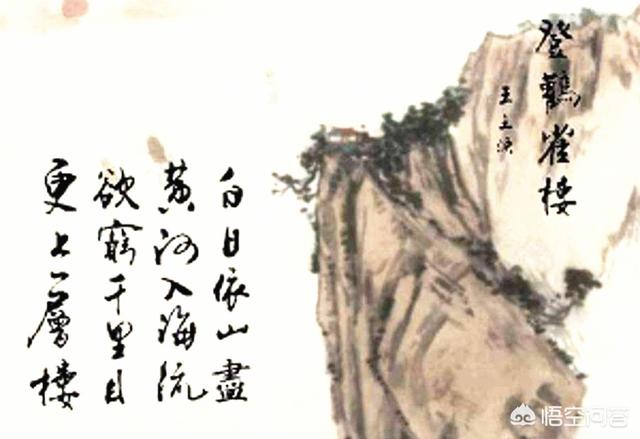 登鸛雀樓
王之渙
白日依山盡
黄河入海流
欲窮千里目
更上一層樓
悟空问答